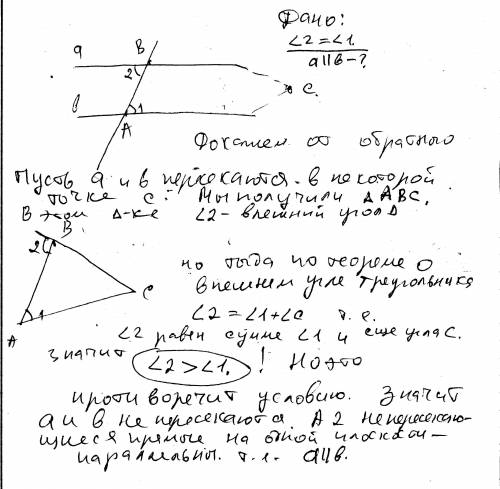 Дано:
∠2=∠1.
a||b-?
a
B
2
C.
b
1
A
Докажем от обратного
Пусть a и b пересекаются в некоторой
точке C. Мы получили ΔABC.
В этом Δ-ке ∠2- внешний угол Δ
B
2
C
A
1
но тогда по теореме о
внешнем угле треугольника
∠2=∠1+∠C т.е.
∠2 равен сумме ∠1 и еще угла C.
значит ∠2>∠1. ! Но это
противоречит условию. Значит
a и b не пресекаются. А 2 непересекаю-
щиеся прямые на одной плоскости-
параллельны. т.е. a||b.